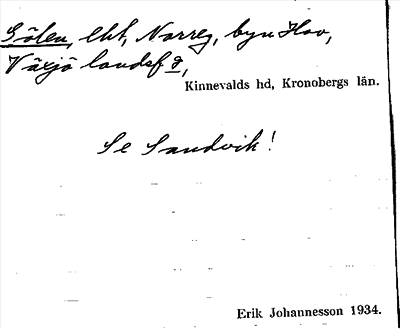 Sölen, lht, Norreg, byn Hov,
Växjö landsf g,
Kinnevalds hd, Kronobergs län.
Se Sandvik!
Erik Johannesson 1934.